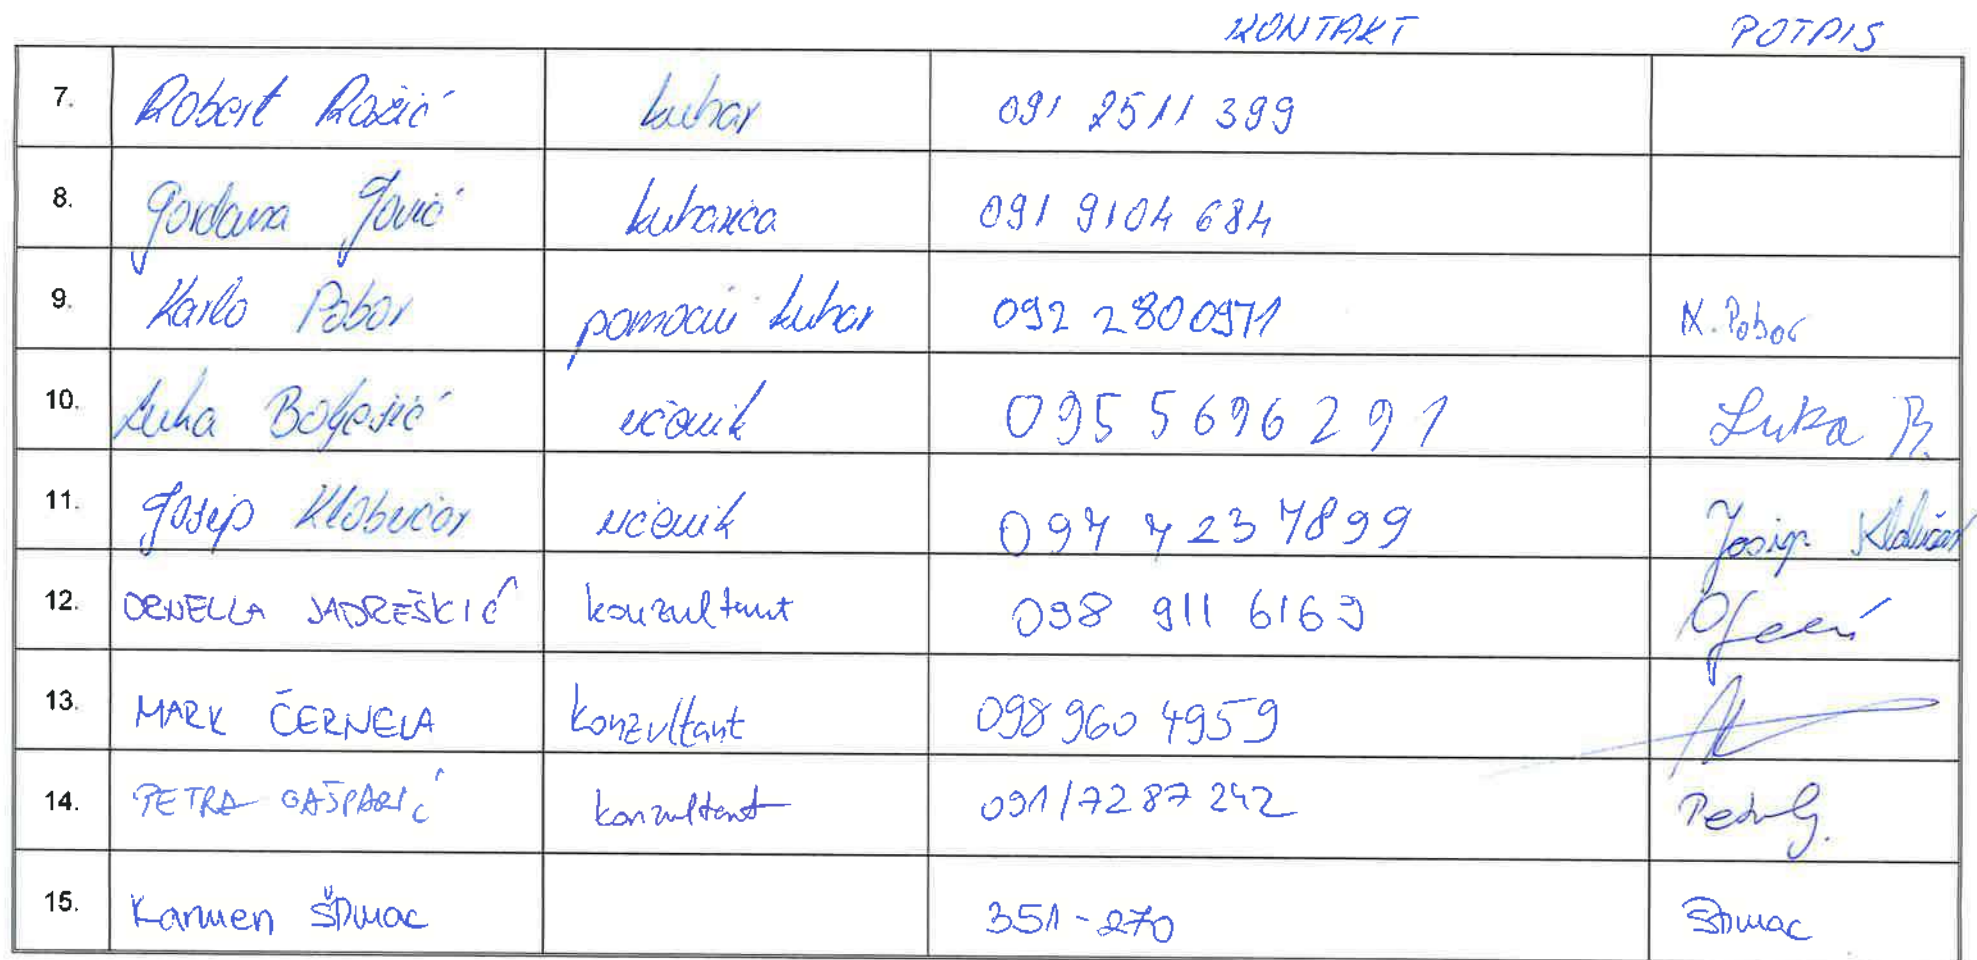 KONTAKT POTPIS
7. Robert Rožić kuhar 091 2511 399
8. Gordana Jović kuharica 091 9104 684
9. Karlo Pobor pomoćni kuhar 092 2800971 K. Pobor
10. Luka učenik 095 5696291 Luka B.
11. Josip Klobučar učenik 097 7237899 Josip Klobučar
12. ORNELLA JADREŠKIĆ konzultant 098 911 6169
13. MARK ČERNELA konzultant 098 960 4959
14. PETRA GAŠPARIĆ konzultant 091/7287 242 Petra G.
15. Karmen Štimac 351-270 Štimac